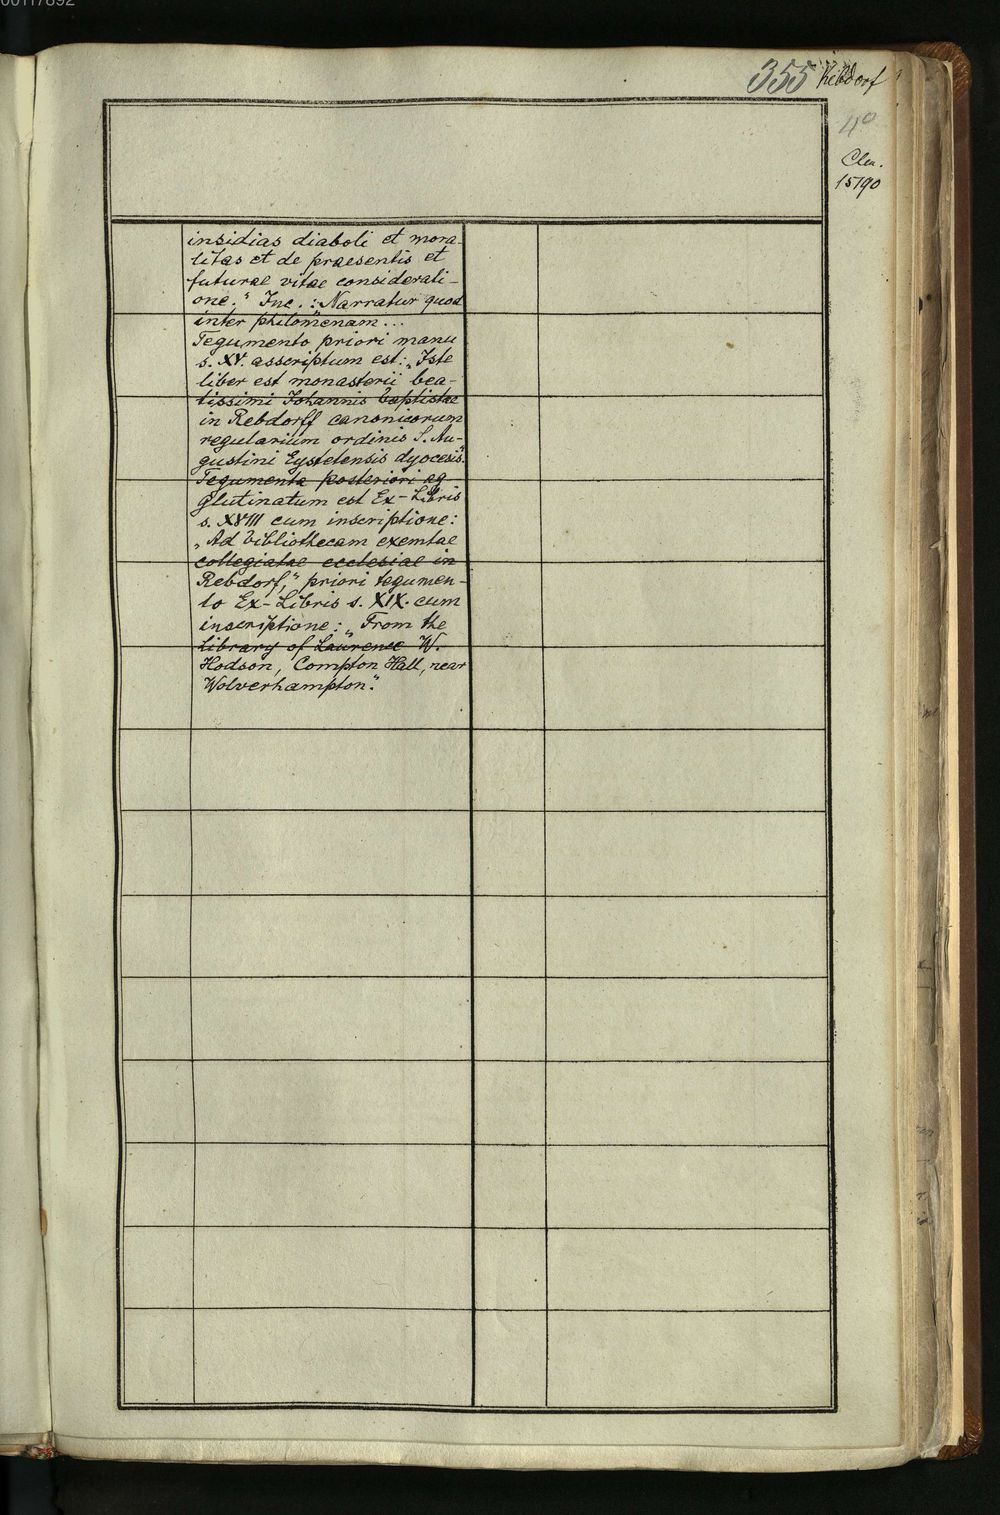 00117892
355 Rebdorf
4°
Clm.
15190
insidias diaboli et mora-
litas et de praesentis et
futurae vitae considerati-
one." Inc.: „Narratur quod
inter philomenam...
Tegumento priori manu
s. XV. asscriptum est: „Iste
liber est monasterii bea-
tissimi Johannis baptistae
in Rebdorff canonicorum
regularium ordinis S. Au-
gustini Eystetensis dyocesis."
Tegumento posteriori ag-
glutinatum est Ex-Libris
s. XVIII cum inscriptione:
„Ad bibliothecam exemtae
collegiatae ecclesiae in
Rebdorf," priori tegumen-
to Ex-Libris s. XIX. cum
inscriptione: „From the
library of Laurence W.
Hodson, Compton Hall, near
Wolverhampton."